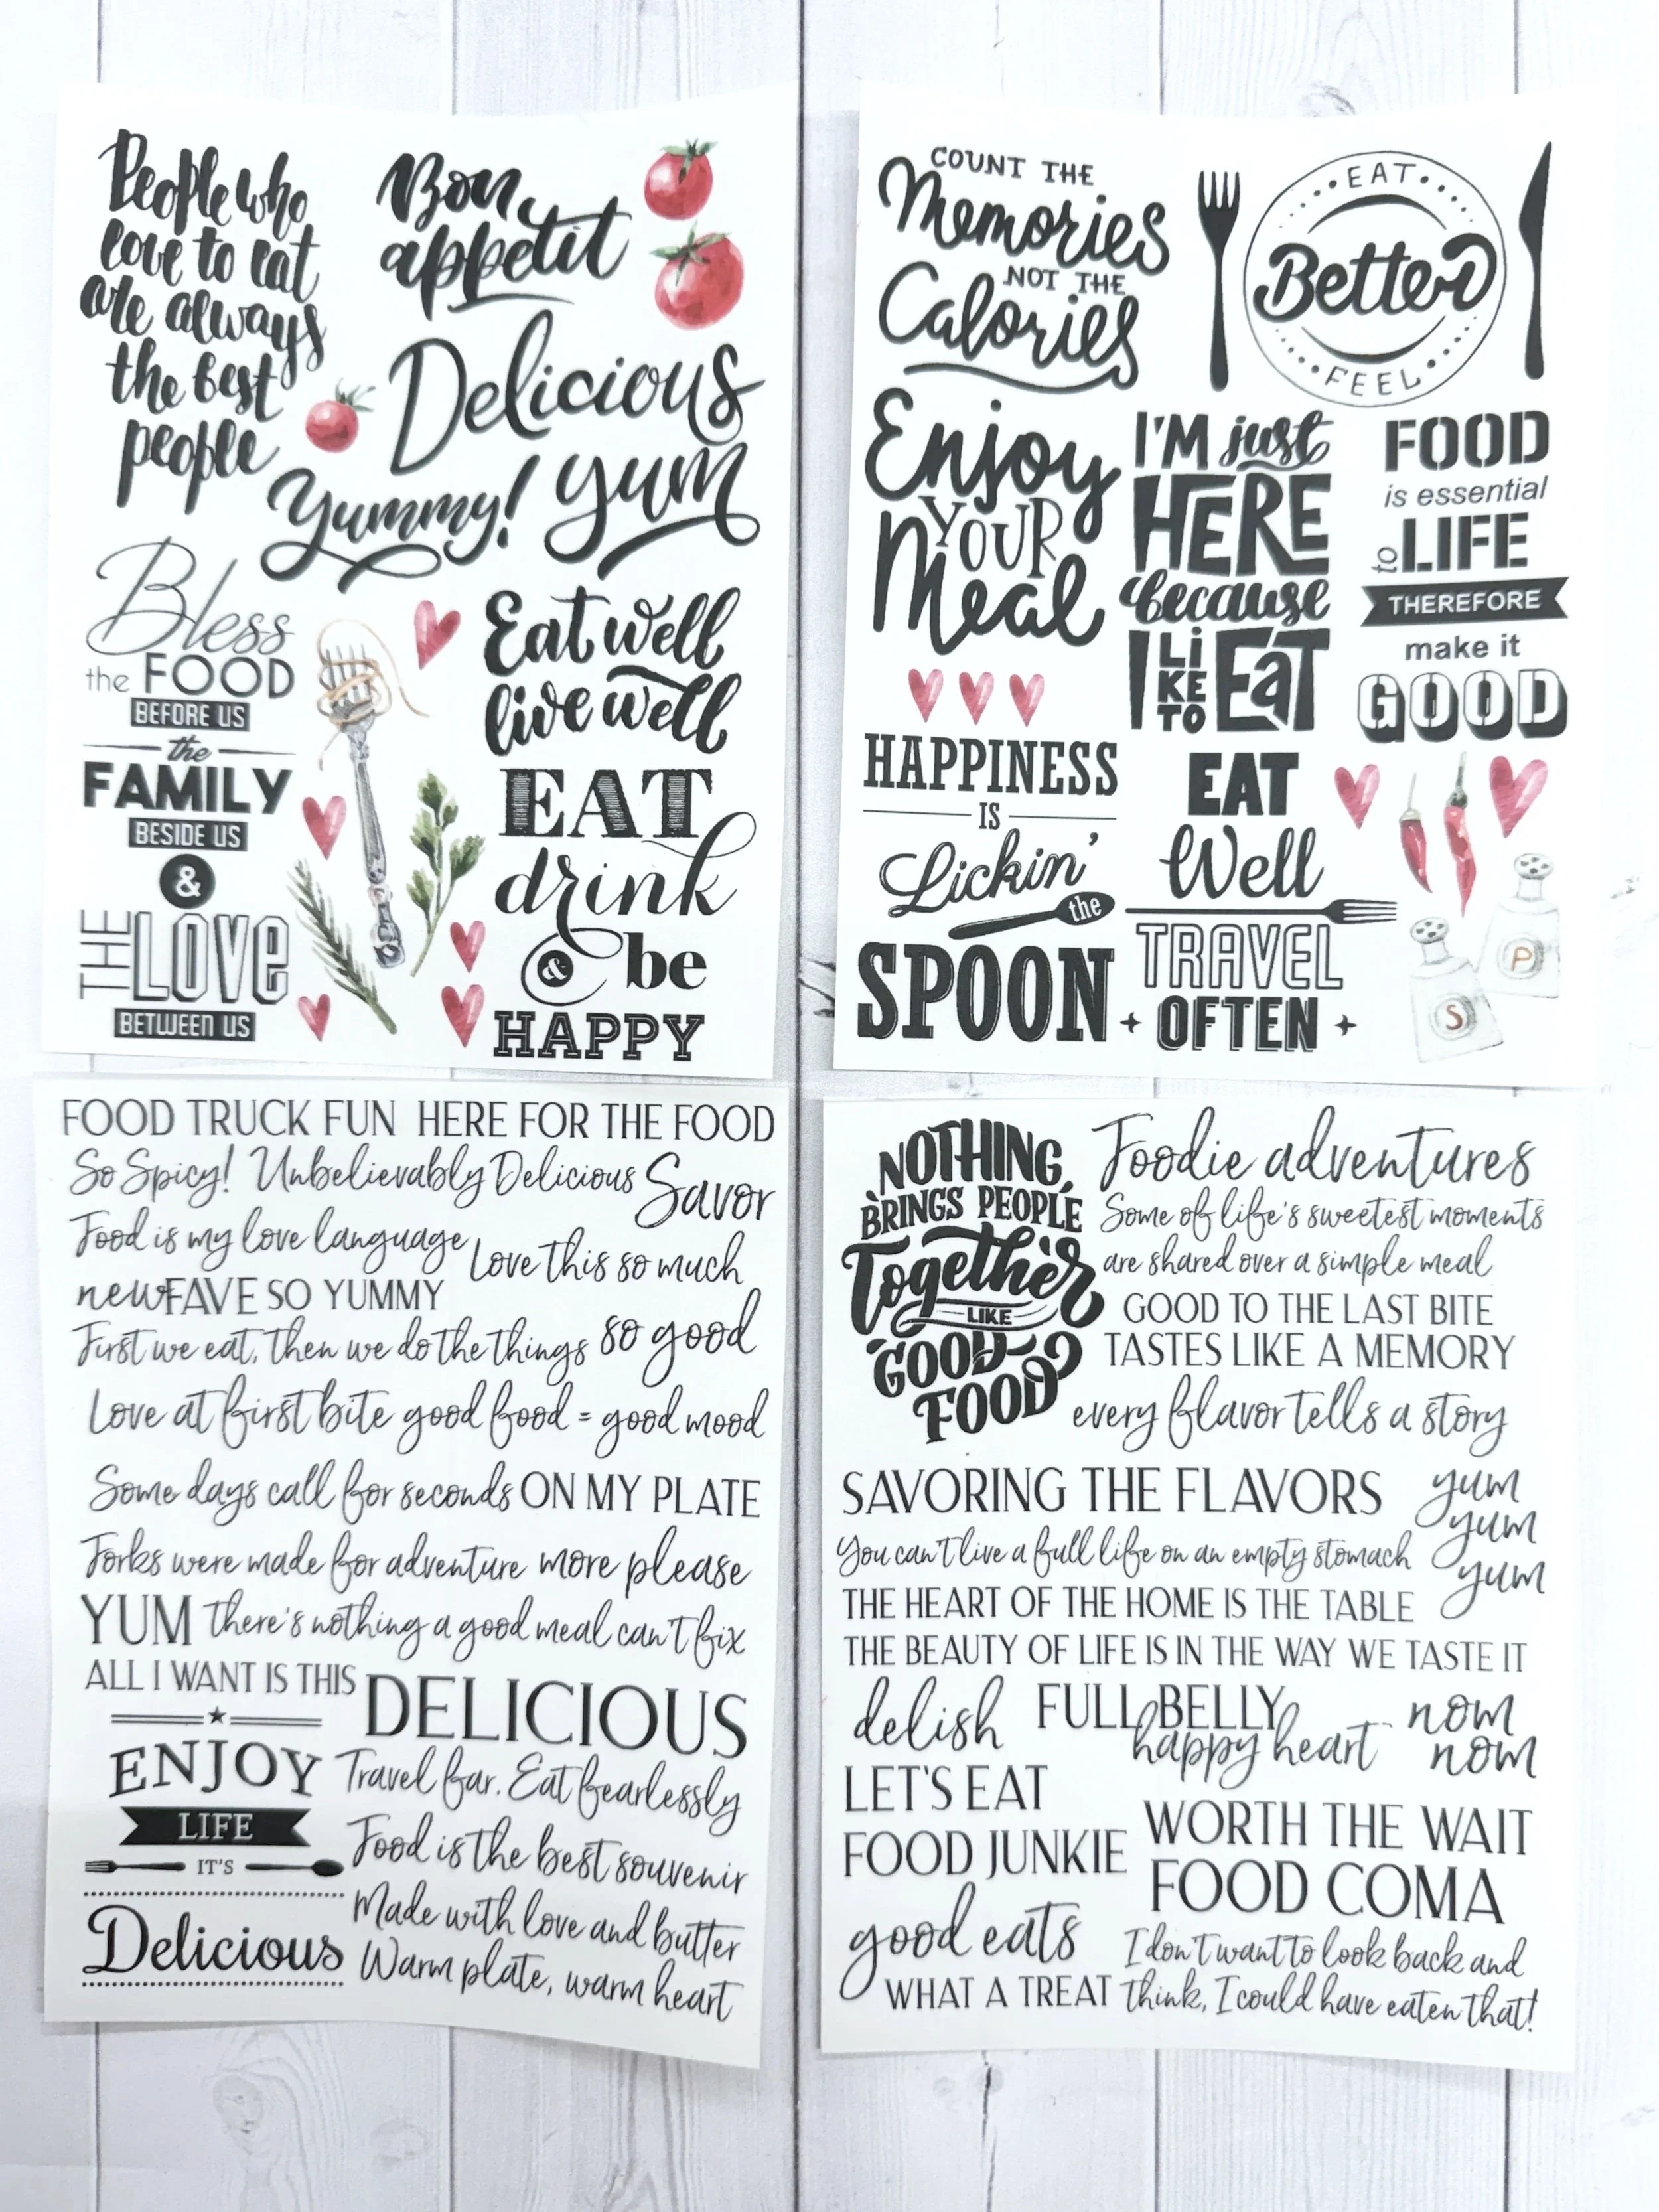 People who
love to eat
are always
the best
people
Bon
appetit
Delicious
Yummy!
yum
Bless
the FOOD
BEFORE US
the
FAMILY
BESIDE US
&
THE LOVE
BETWEEN US
Eat well
live well
EAT
drink
& be
HAPPY
COUNT THE
Memories
NOT THE
Calories
EAT
Better
FEEL
Enjoy
YOUR
Meal
I'M just
HERE
because
I LIKE TO EaT
FOOD
is essential
to LIFE
THEREFORE
make it
GOOD
HAPPINESS
IS
Lickin'
the
SPOON
EAT
Well
TRAVEL
OFTEN
S
P
FOOD TRUCK FUN HERE FOR THE FOOD
So Spicy! Unbelievably Delicious Savor
Food is my love language Love this so much
new FAVE SO YUMMY
First we eat, then we do the things so good
Love at first bite good food = good mood
Some days call for seconds ON MY PLATE
Forks were made for adventure more please
YUM there's nothing a good meal can't fix
ALL I WANT IS THIS DELICIOUS
ENJOY
LIFE
IT'S
Delicious
Travel far. Eat fearlessly
Food is the best souvenir
Made with love and butter
Warm plate, warm heart
NOTHING
BRINGS PEOPLE
Together
LIKE
GOOD
FOOD
Foodie adventures
Some of life's sweetest moments
are shared over a simple meal
GOOD TO THE LAST BITE
TASTES LIKE A MEMORY
every flavor tells a story
SAVORING THE FLAVORS
yum
yum
yum
You can't live a full life on an empty stomach
THE HEART OF THE HOME IS THE TABLE
THE BEAUTY OF LIFE IS IN THE WAY WE TASTE IT
delish
FULL BELLY
happy heart
nom
nom
LET'S EAT
FOOD JUNKIE
WORTH THE WAIT
FOOD COMA
good eats
WHAT A TREAT
I don't want to look back and
think, I could have eaten that!